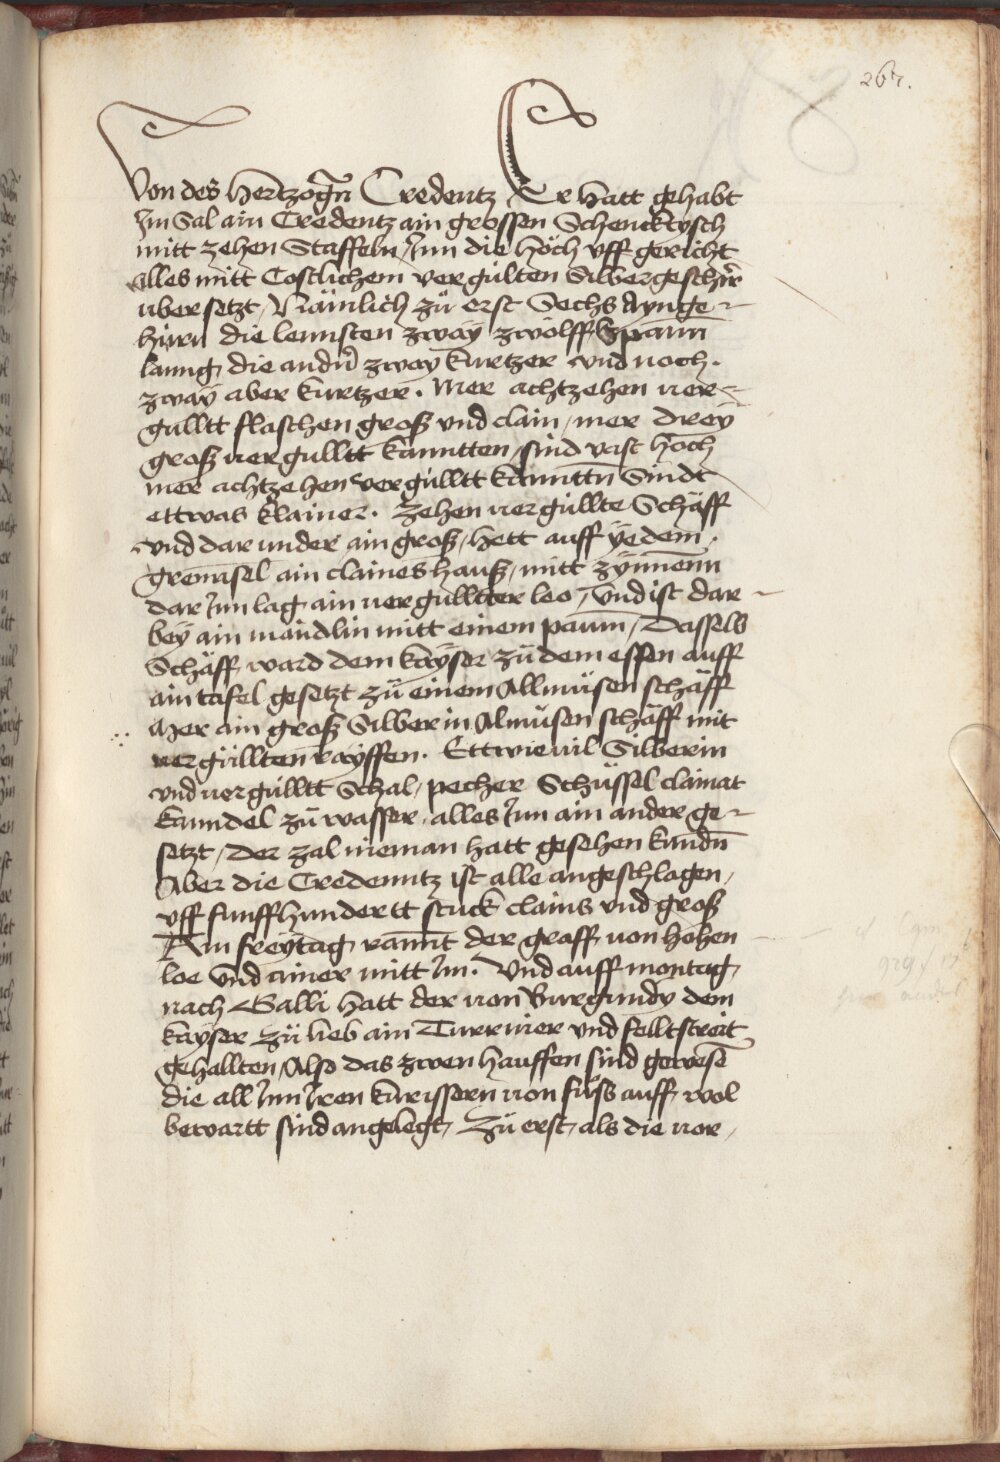 267.
Von des hertzogn̄ Credentz Er hatt gehabt
Jm Sal ain Credentz ain grossen Schencktysch
mitt zehen Staffeln / Jnn die höch vff gericht
alles mitt Costlichem vergülten Silbergeschir̄
uber setzt / Nämlich zü erst Sechs Aynge-
hürn die lenngsten zway zwölff Spann̄
lanng, die andn̄ zway kurtzer vnd noch.
zway aber kurtzer. Mer achtzehen ver-
gulltt flaschen groß vnd clain / mer drey
groß vergulltt kanntten / sind vast hoch
mer achtzehen vergulltt kanntn̄ Sindt
ettwas klainer. Zehen vergüllte Schäff
vnd dar under ain groß / hett auff yedem.
ain claines hauß / mitt zynnenn
dar Jnn lag ain vergulltter leo / vnd ist dar-
bey ain mändlin mitt einem paum̄ / Dasselb
Schäff ward dem kayser zü dem essen auff
ain tafel gesetzt zü einem Allmüsen schäff
Mer ain groß Silberin Almüsen schäff mit
vergüllten rayffen. Ettwievil Silberin
vnd vergülltt Schal / pecher Schüssel clainat
kanndel zü wasser. alles Jnn ain ander ge-
setzt / Der zal nieman hatt gesehen kündn̄
Aber die Credenntz ist alle angeschlagen /
vff funffhundertt stuck clains vnd groß
Am freytag rannt der graff von hohen
loe vnd ainer mitt Jm. Vnd auff montag
nach Galli hatt der von Burgundy dem
kayser zü lieb ain Turnier vnd felltstreit
gehallten / Also das zwen hauffen sind gewesē
die all Jnn Jren kürissern von füß auff wol
bewartt sind angelegt, Zü erst, als die vor /